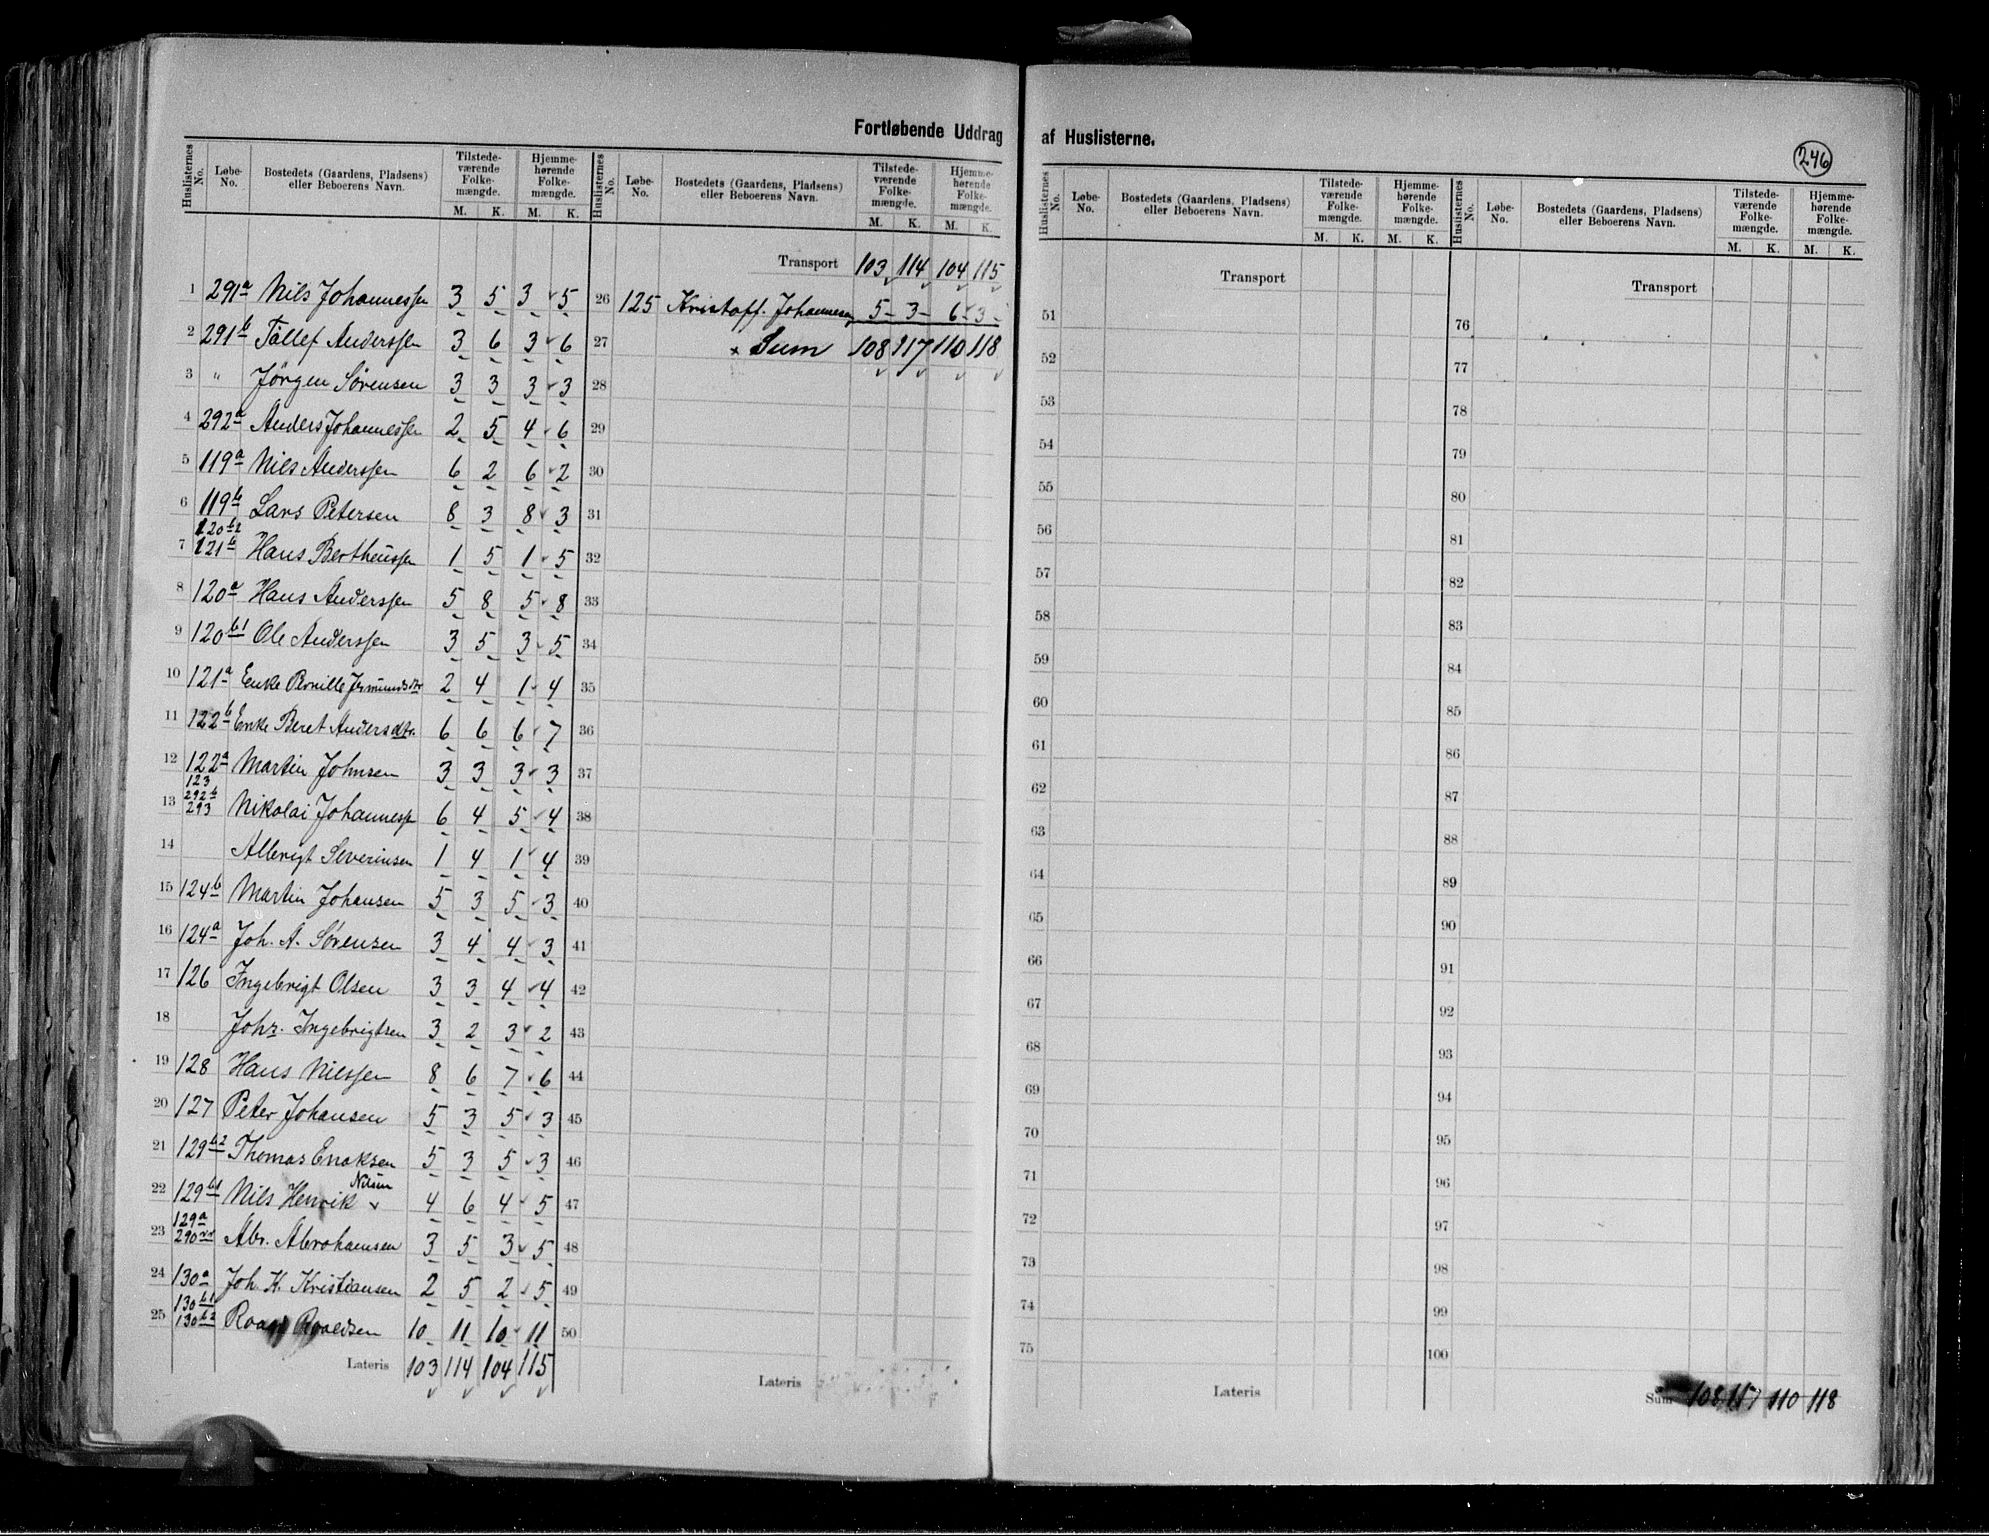 Fortløbende Uddrag af Huslisterne.
246
Huslisternes No. Løbe-No. Bostedets (Gaardens, Pladsens) eller Beboerens Navn. Tilstedeværende Folkemængde. M. K. Hjemmehørende Folkemængde. M. K.
1 291a Nils Johannessen 3 5 3 5
2 291b Tollef Anderssen 3 6 3 6
3 " Jørgen Sørensen 3 3 3 3
4 292a Anders Johannessen 2 5 4 6
5 119a Nils Anderssen 6 2 6 2
6 119b Lars Petersen 8 3 8 3
120b2
7 121b Hans Bertheussen 1 5 1 5
8 120a Hans Anderssen 5 8 5 8
9 120b1 Ole Anderssen 3 5 3 5
10 121a Enke Pernille Jermundsdtr 2 4 1 4
11 122b Enke Beret Andersdtr. 6 6 6 7
12 122a Martin Johnsen 3 3 3 3
123
292b
13 293 Nikolai Johannessen 6 4 5 4
14 Albrigt Severinsen 1 4 1 4
15 124b Martin Johansen 5 3 5 3
16 124a Joh. A. Sørensen 3 4 4 3
17 126 Ingebrigt Olsen 3 3 4 4
18 Johs. Ingebrigtsen 3 2 3 2
19 128 Hans Nilssen 8 6 7 6
20 127 Peter Johansen 5 3 5 3
21 129b2 Thomas Enoksen 5 3 5 3
Nilsen
22 129b1 Nils Henrik 4 6 4 5
129a
23 290 Abr. Abrahamsen 3 5 3 5
24 130a Joh. K. Kristiansen 2 5 2 5
130b1
25 130b2 Roald Roaldsen 10 11 10 11
Lateris 103 114 104 115
Huslisternes No. Løbe-No. Bostedets (Gaardens, Pladsens) eller Beboerens Navn. Tilstedeværende Folkemængde. M. K. Hjemmehørende Folkemængde. M. K.
Transport 103 114 104 115
26 125 Kristoff. Johannesen 5 3 6 3
27 Sum 108 117 110 118
28
29
30
31
32
33
34
35
36
37
38
39
40
41
42
43
44
45
46
47
48
49
50
Lateris
Huslisternes No. Løbe-No. Bostedets (Gaardens, Pladsens) eller Beboerens Navn. Tilstedeværende Folkemængde. M. K. Hjemmehørende Folkemængde. M. K.
Transport
51
52
53
54
55
56
57
58
59
60
61
62
63
64
65
66
67
68
69
70
71
72
73
74
75
Lateris
Huslisternes No. Løbe-No. Bostedets (Gaardens, Pladsens) eller Beboerens Navn. Tilstedeværende Folkemængde. M. K. Hjemmehørende Folkemængde. M. K.
Transport
76
77
78
79
80
81
82
83
84
85
86
87
88
89
90
91
92
93
94
95
96
97
98
99
100
Sum 108 117 110 118